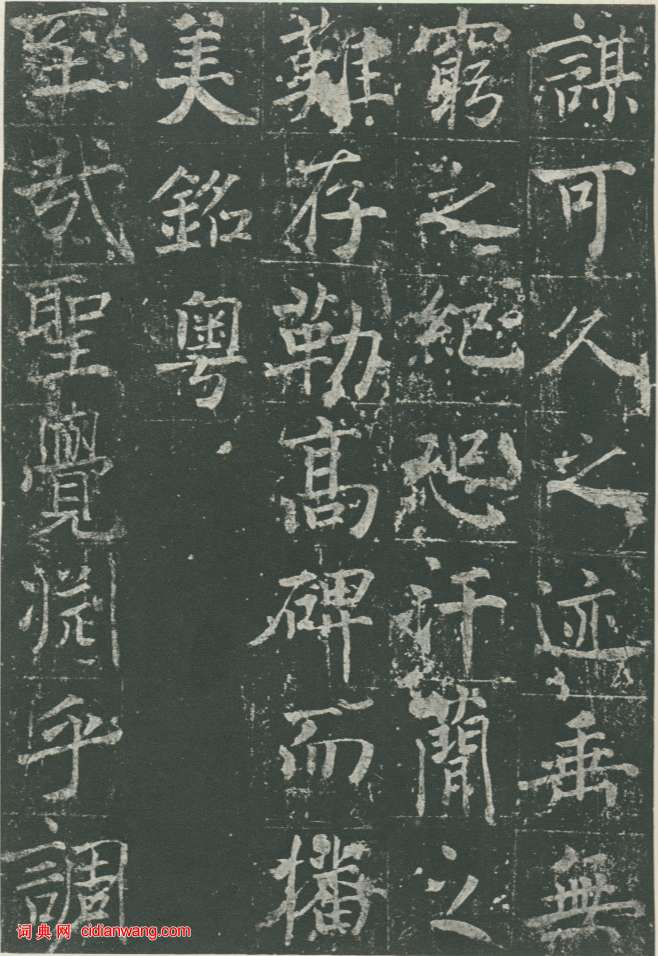 謀可久之迹垂無
窮之紀恐汗簡之
難存勒高碑而播
美銘粵
至哉聖覺乎調
词典网 cidianwang.com